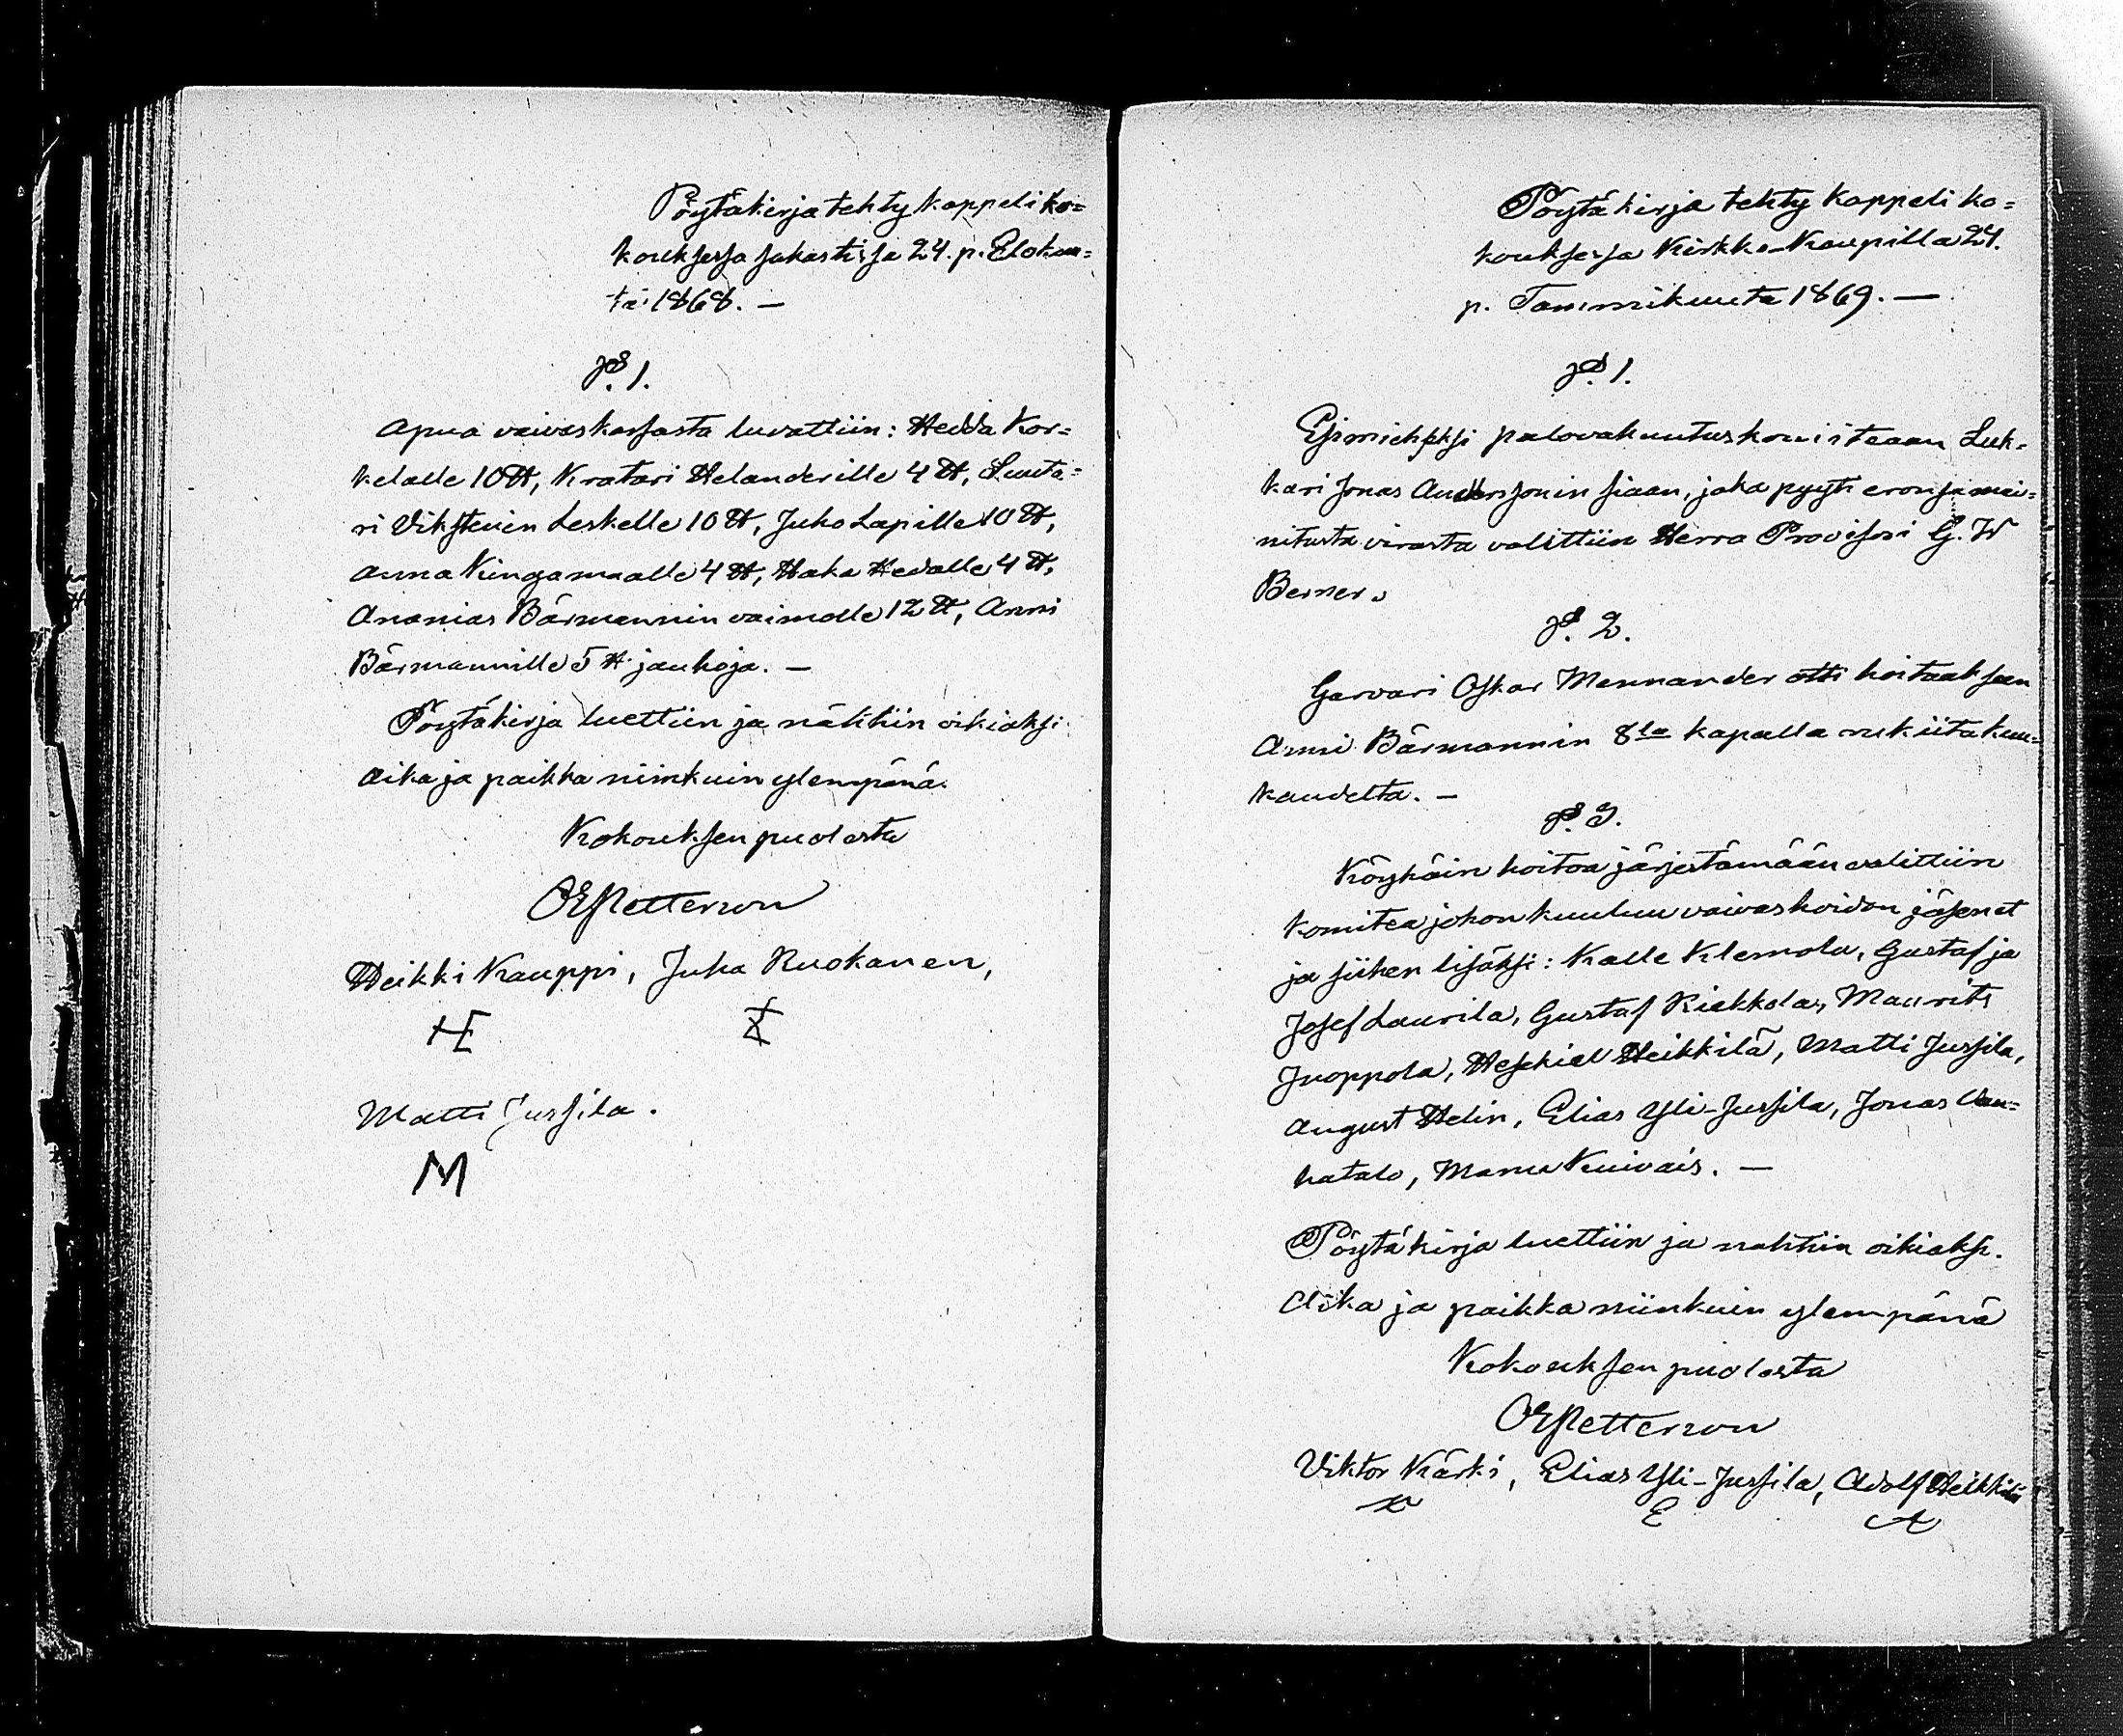 Pöytäkirja tehty kappeli ko=
kouksessa sakastissa 24. p. Elokuu=
ta 1868. —
§. 1.
Apua vaivaskassasta luvattiin: Hedda Kor=
kelalle 10 ℔, Kratari Helanderille 4 ℔, Suuta=
ri Vikstenin Leskelle 10 ℔, Juho Lapille 10 ℔,
Anna Kungamaalle 4 ℔, Haka Hedalle 4 ℔,
Ananias Bärmannin vaimolle 12 ℔, Anni
Bärmannille 5 ℔ jauhoja. —
Pöytäkirja luettiin ja nähtiin oikiaksi
Aika ja paikka niinkuin ylempänä.
Kokouksen puolesta
OEPetterson
Heikki Kauppi, Juha Ruokanen,
Matti Jussila.
M
Pöytäkirja tehty Kappeli ko=
kouksessa Kirkko-Kaupilla 24.
p. Tammikuuta 1869. —
§. 1.
Esimieheksi palovakuutuskomiteaan Luk=
kari Jonas Anderssonin siaan, joka pyysi eronsa mai=
nitusta virasta valittiin Herra Provisori G. W
Berner.
§. 2.
Garvari Oskar Mennander otti hoitaaksen
Anni Bärmannin 8la kapalla rukiita kuu=
kaudelta. —
§. 3.
Köyhäin hoitoa järjestämään valittiin
komitea johon kuuluu vaivashoidon jäsenet
ja siihen lisäksi: Kalle Klemola, Gustaf ja
Josef Laurila, Gustaf Kiekkola, Maurits
Juoppola, Heskiel Heikkilä, Matti Jussila,
August Helin, Elias Yli-Jussila, Jonas Van=
hatalo, Manu Kuivais. —
Pöytäkirja luettiin ja nähtiin oikiaksi.
Aika ja paikka niinkuin ylempänä
Kokouksen puolesta
OEPetterson
Viktor Kärki, Elias Yli-Jussila, Adolf Heikkilä
E
A